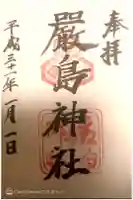 奉拝
嚴島神社
平成三十一年一月一日